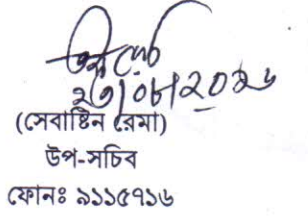 ২৩/০৮/২০১৬
(সেবাষ্টিন রেমা)
উপ-সচিব
ফোনঃ ৯১১৫৭১৬